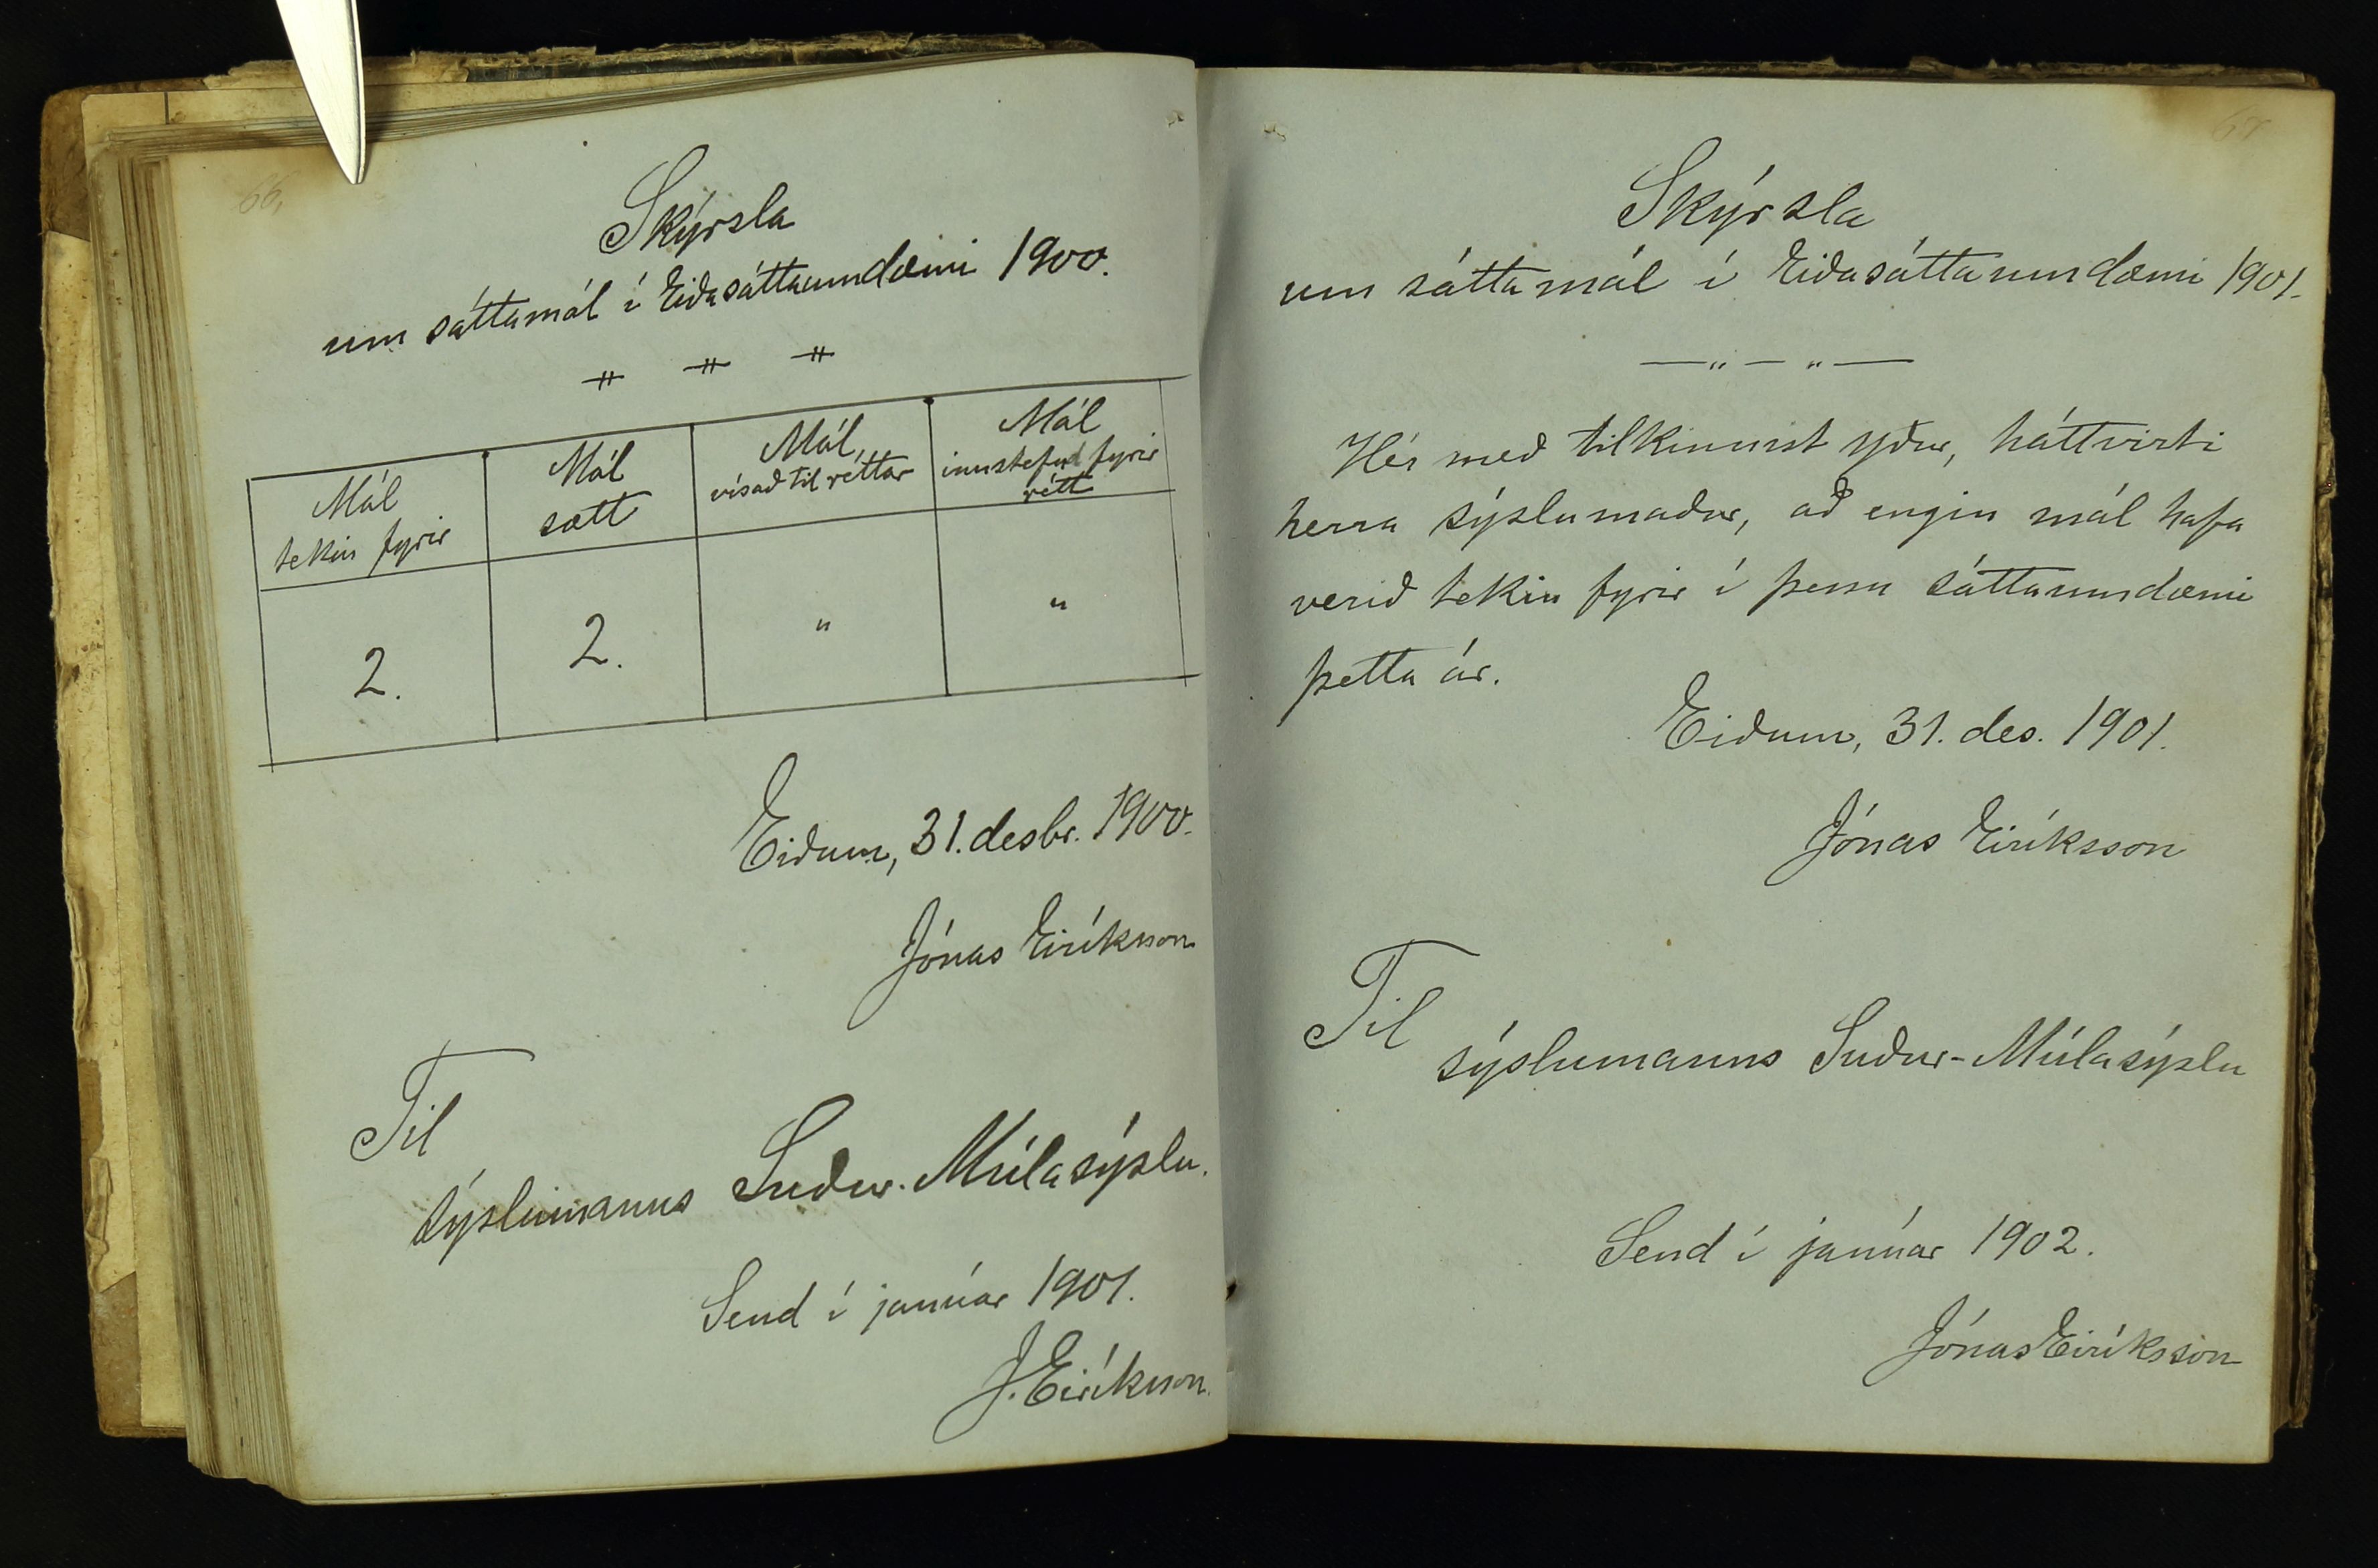 66.
Skýrsla
um sáttamál í Eiðasáttaumdæmi 1900.
Mál tekin fyrir
Mál sætt
Mál, vísað til réttar
Mál innstefnd fyrir rétt
2.
2.
"
"
Eiðum, 31. desbr. 1900.
Jónas Eiríksson
Til
sýslumanns Suður-Múlasýslu.
Send í janúar 1901.
J. Eiríksson.
67
Skýrsla
um sáttamál í Eiðasáttaumdæmi 1901.
— " — " —
Hér með tilkinnist yður, háttvirti
herra sýslumaður, að engin mál hafa
verið tekin fyrir í þessu sáttaumdæmi
þetta ár.
Eiðum, 31. des. 1901.
Jónas Eiríksson
Til
sýslumanns Suður-Múlasýslu
Send í janúar 1902.
Jónas Eiríksson